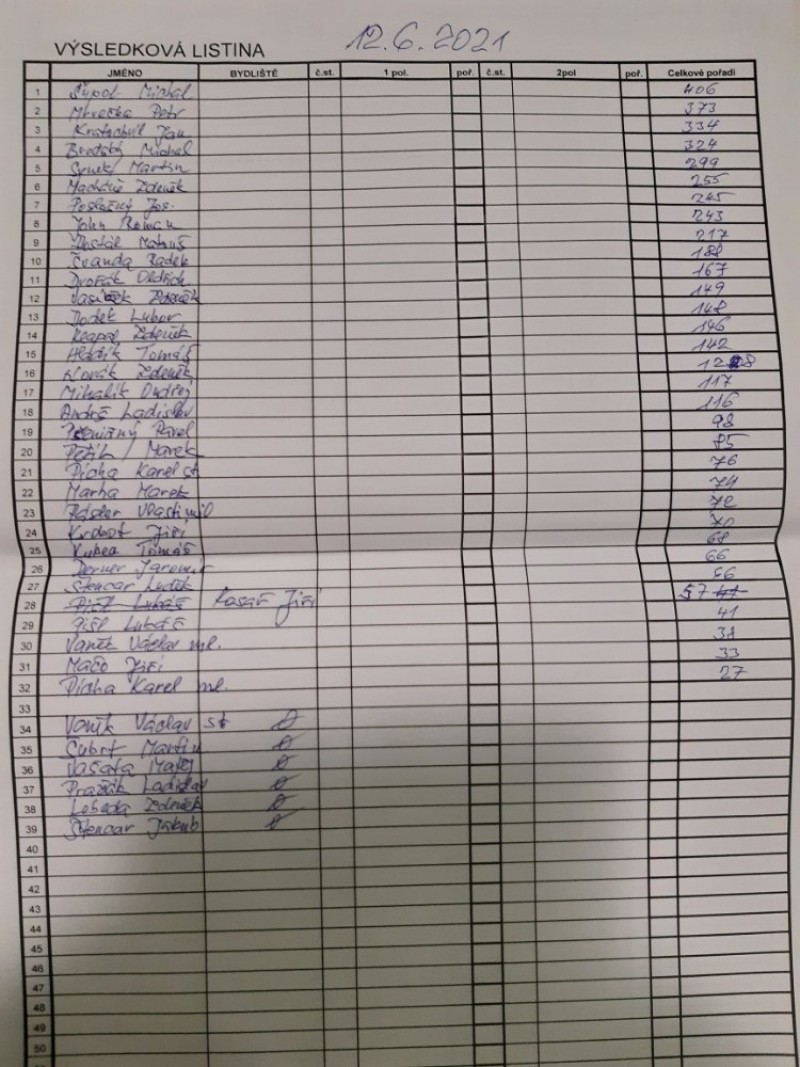 VÝSLEDKOVÁ LISTINA 12.6.2021
JMÉNO BYDLIŠTĚ č.st. 1 pol. poř. č.st. 2pol poř. Celkové pořadí
1 Michal 406
2 Mrvečka Petr 373
3 Kratochvíl Jan 334
4 Brodský Michal 324
5 Synek Martin 299
6 Macháně Zdeněk 255
7 Posležný Jos. 245
8 John Roman 243
9 Dostál Matouš 217
10 Švanda Radek 188
11 Dvořák Oldřich 167
12 Vašíček Zdeněk 149
13 Dodek Lubor 148
14 Zdeněk 146
15 Hladík Tomáš 142
16 Novák Zdeněk 128
17 Mihalik Ondřej 117
18 Andrš Ladislav 116
19 Pavel 98
20 Petřík Marek 85
21 Pícha Karel st 76
22 Marha Marek 74
23 Pásler Vlastimil 72
24 Krdout Jiří 70
25 Kubea Tomáš 68
26 Derner Jaromír 66
27 Stencar Luděk 66
28 Pišl Lukáš Kasař Jiří 57 41
29 Pišl Lukáš 41
30 Vaněk Václav ml. 38
31 Mačo Jiří 33
32 Pícha Karel ml. 27
33
34 Vaněk Václav st 0
35 Čubrt Martin 0
36 Vašata Matěj 0
37 Pražák Ladislav 0
38 Lebeda Zdeněk 0
39 Stencar Jakub 0
40
41
42
43
44
45
46
47
48
49
50